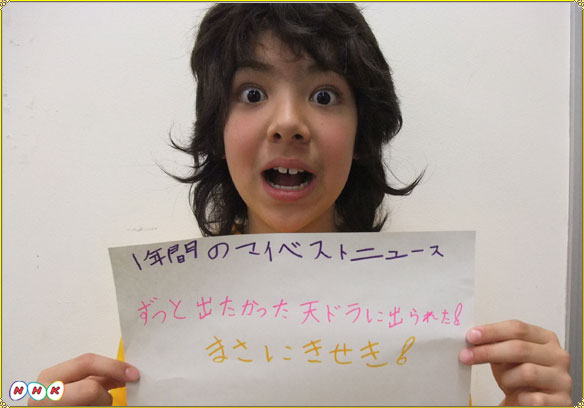 1年間のマイベストニュース
ずっと出たかった天ドラに出られた!
まさにきせき!
NHK